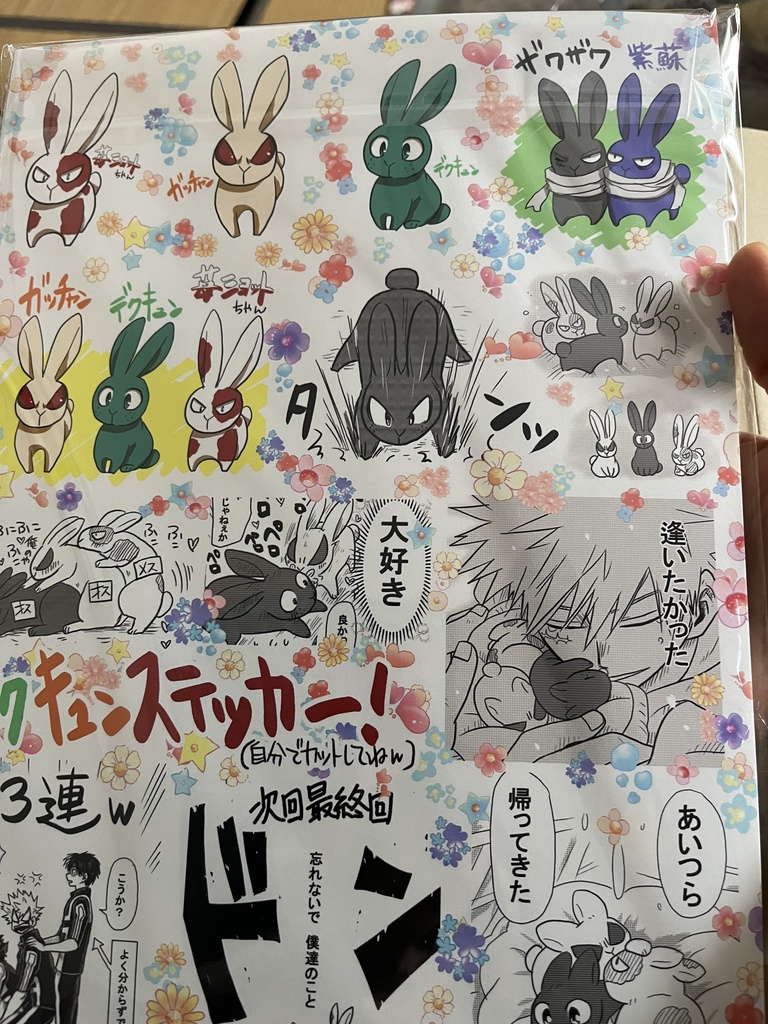 ザワザワ 紫蘇
苺ショット
ちゃん
ガッチャン
デクキュン
ガッチャン
デクキュン
苺ショット
ちゃん
タ
ンッ
ふにふに
ふに
俺
オス
オス
メス
じゃねぇか
大好き
良か
逢いたかった
クキュンステッカー!
(自分でカットしてねw)
3連w
次回最終回
こうか?
よく分からずで
ドン
忘れないで 僕達のこと
あいつら
帰ってきた